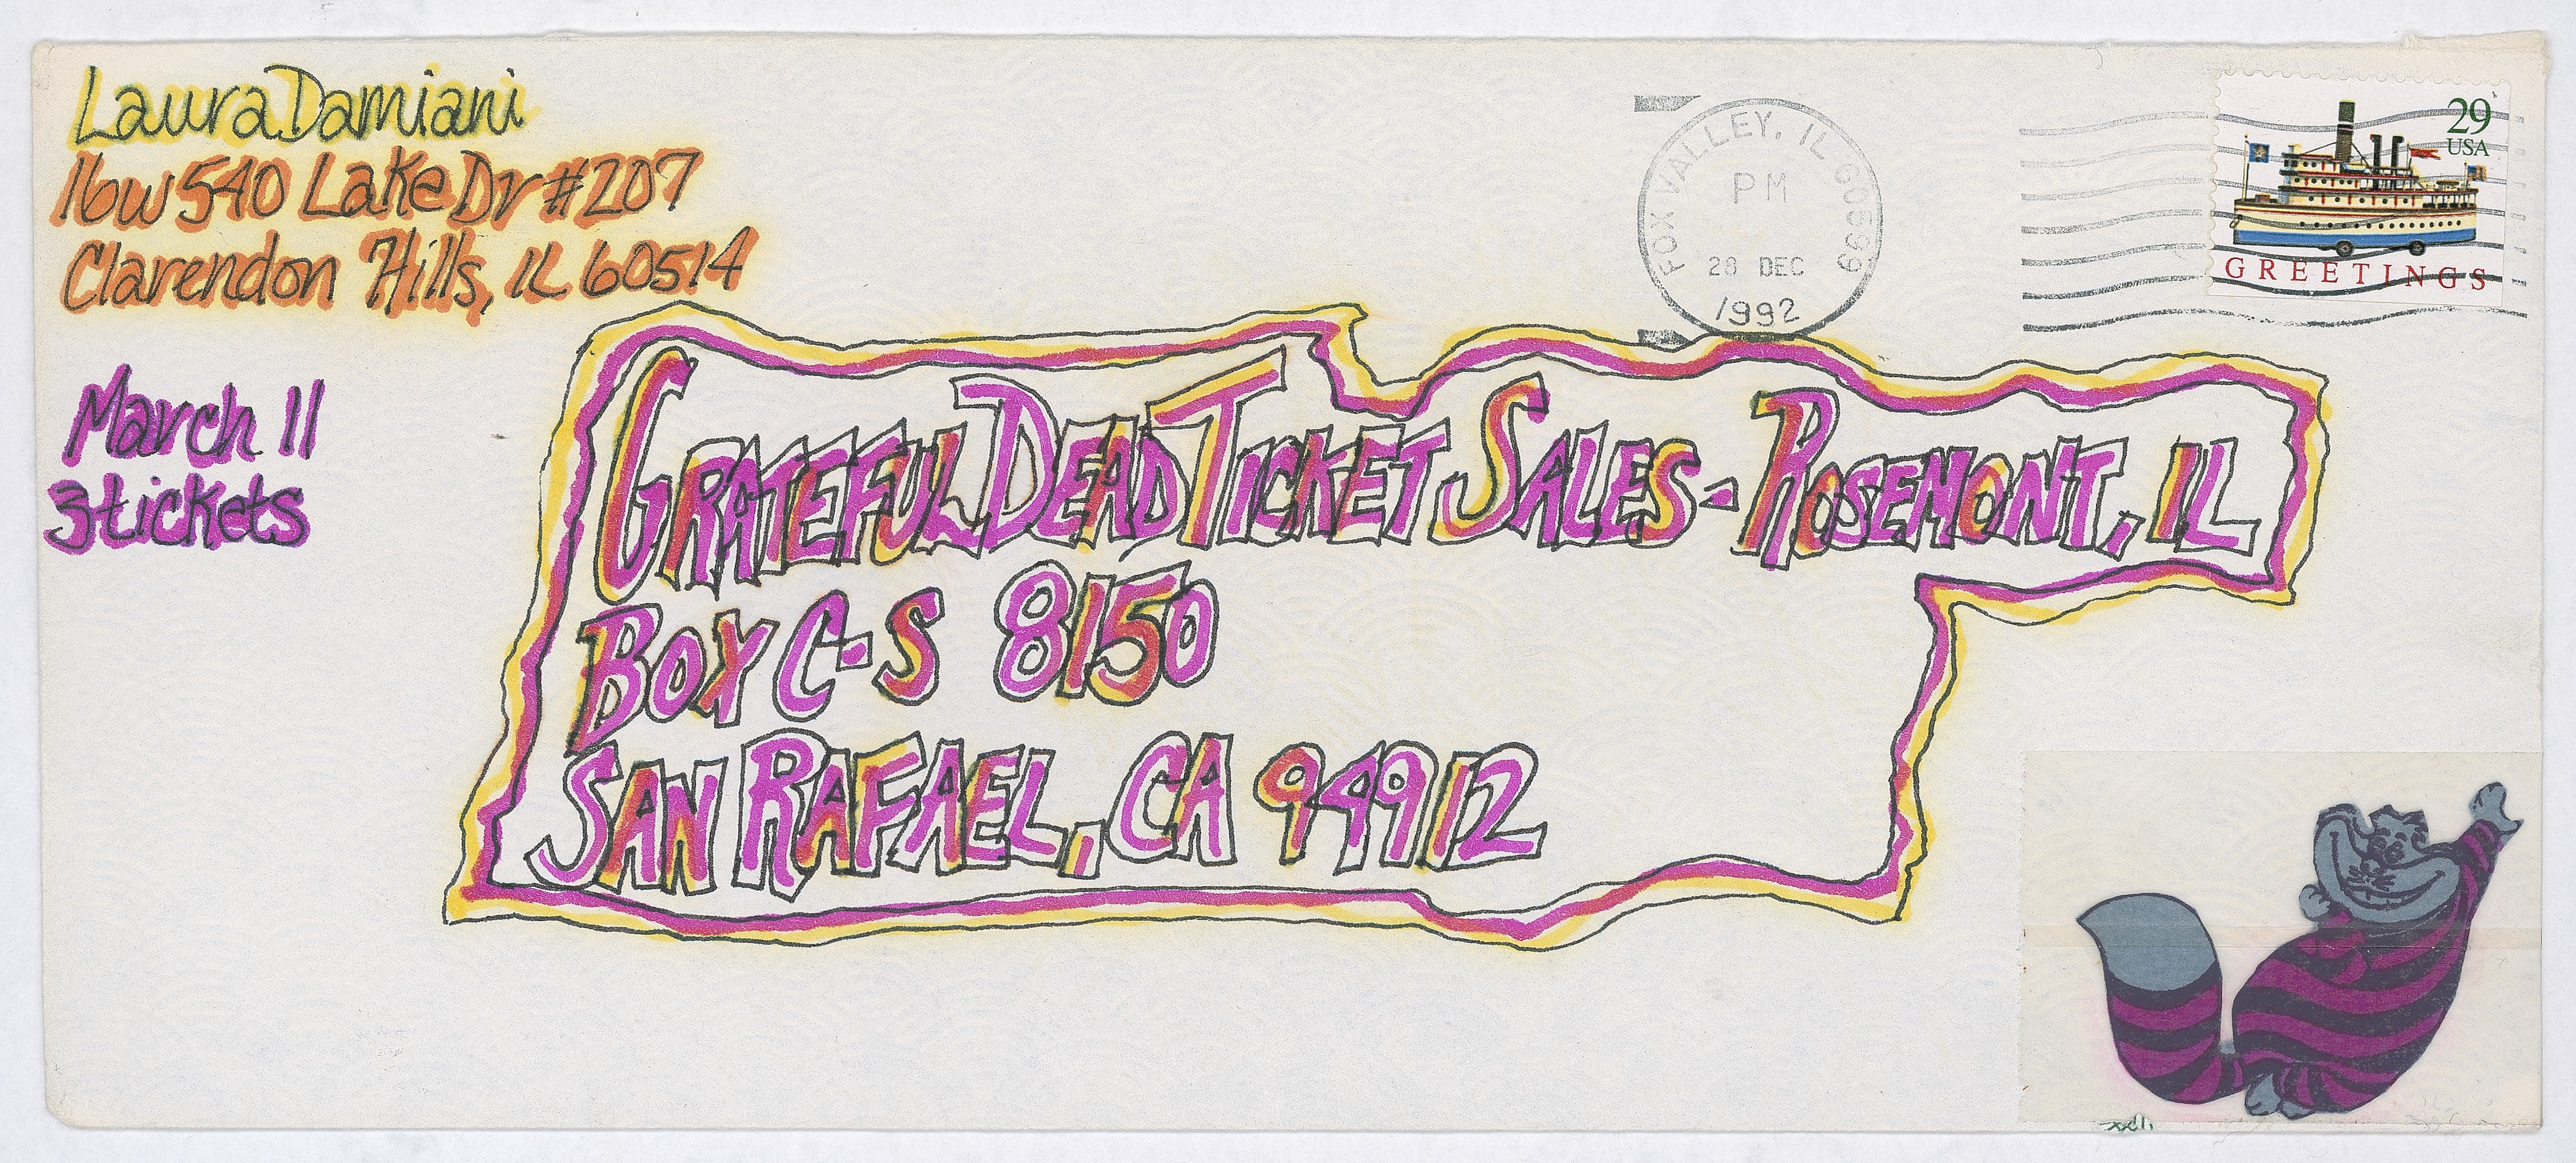 Laura Damiani
16w540 Lake Dr #207
Clarendon Hills, IL 60514
March 11
3 tickets
FOX VALLEY, IL 60599
PM
28 DEC
1992
29
USA
GREETINGS
GRATEFUL DEAD TICKET SALES - ROSEMONT, IL
BOX C-S 8150
SAN RAFAEL, CA 94912